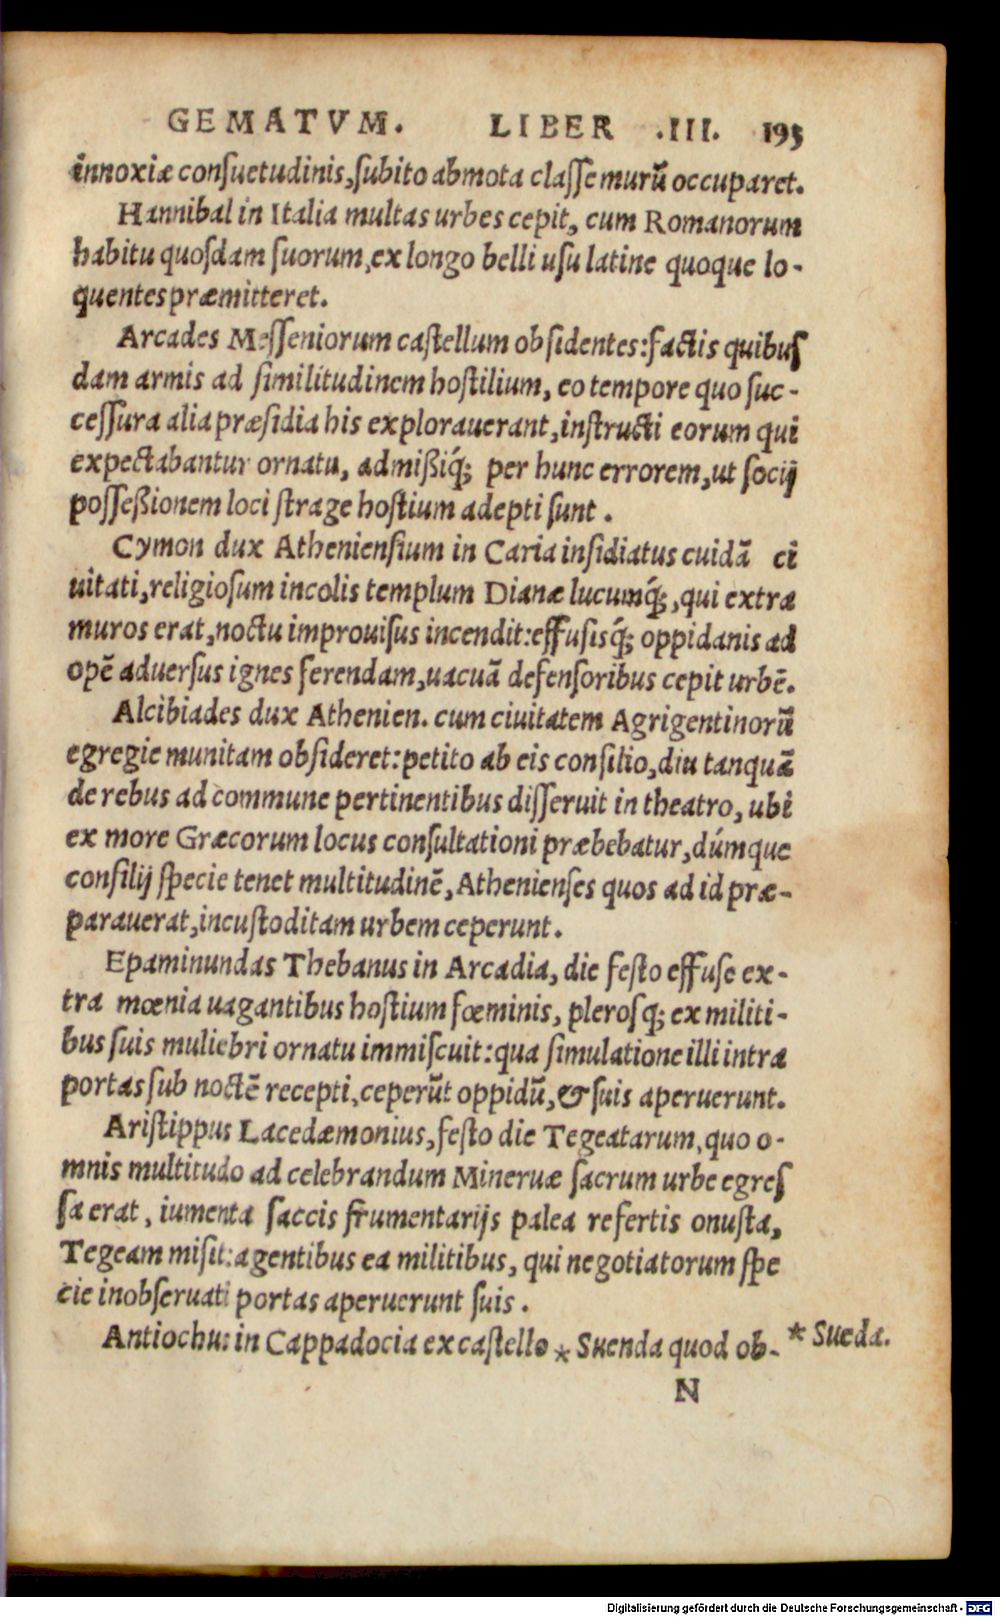 GEMATVM. LIBER .III. 193
innoxiæ conſuetudinis, ſubito abmota claſſe murũ occuparet.
Hannibal in Italia multas urbes cepit, cum Romanorum
habitu quoſdam ſuorum, ex longo belli uſu latine quoque lo-
quentes præmitteret.
Arcades Meſſeniorum caſtellum obſidentes: factis quibuſ
dam armis ad ſimilitudinem hoſtilium, eo tempore quo ſuc-
ceſſura alia præſidia his explorauerant, inſtructi eorum qui
expectabantur ornatu, admißiq́; per hunc errorem, ut ſocij
poſſeßionem loci ſtrage hoſtium adepti ſunt.
Cymon dux Athenienſium in Caria inſidiatus cuidã ci
uitati, religioſum incolis templum Dianæ lucumq́;, qui extra
muros erat, noctu improuiſus incendit: effuſisq́; oppidanis ad
opẽ aduerſus ignes ferendam, uacuã defenſoribus cepit urbẽ.
Alcibiades dux Athenien. cum ciuitatem Agrigentinorũ
egregie munitam obſideret: petito ab eis conſilio, diu tanquã
de rebus ad commune pertinentibus diſſeruit in theatro, ubi
ex more Græcorum locus conſultationi præbebatur, dúmque
conſilij ſpecie tenet multitudinẽ, Athenienſes quos ad id præ-
parauerat, incuſtoditam urbem ceperunt.
Epaminundas Thebanus in Arcadia, die feſto effuſe ex-
tra mœnia uagantibus hoſtium fœminis, pleroſq; ex militi-
bus ſuis muliebri ornatu immiſcuit: qua ſimulatione illi intra
portas ſub noctẽ recepti, ceperũt oppidũ, & ſuis aperuerunt.
Ariſtippus Lacedæmonius, feſto die Tegeatarum, quo o-
mnis multitudo ad celebrandum Mineruæ ſacrum urbe egreſ
ſa erat, iumenta ſaccis frumentarijs palea refertis onuſta,
Tegeam miſit: agentibus ea militibus, qui negotiatorum ſpe
cie inobſeruati portas aperuerunt ſuis.
Antiochus in Cappadocia ex caſtello * Suenda quod ob- * Sueda.
N
Digitalisierung gefördert durch die Deutsche Forschungsgemeinschaft - DFG